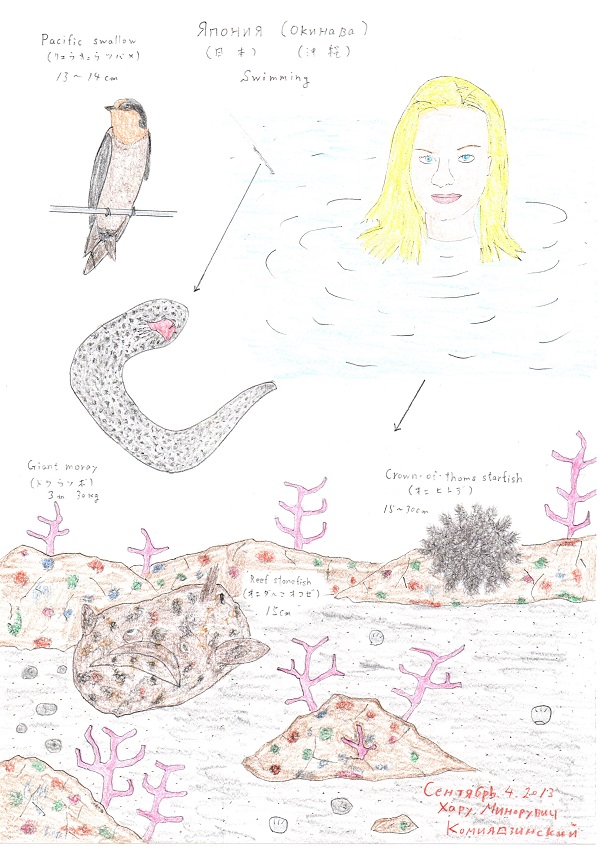 Япония (Окинава)
(日本) (沖縄)
Swimming
Pacific swallow
(リュウキュウツバメ)
13~14cm
Giant moray
(ドクウツボ)
3m 30kg
Crown-of-thorns starfish
(オニヒトデ)
15~30cm
Reef stonefish
(オニダルマオコゼ)
15cm
Сентябрь 4. 2013
Хару. Минорувич
Комиядзинский